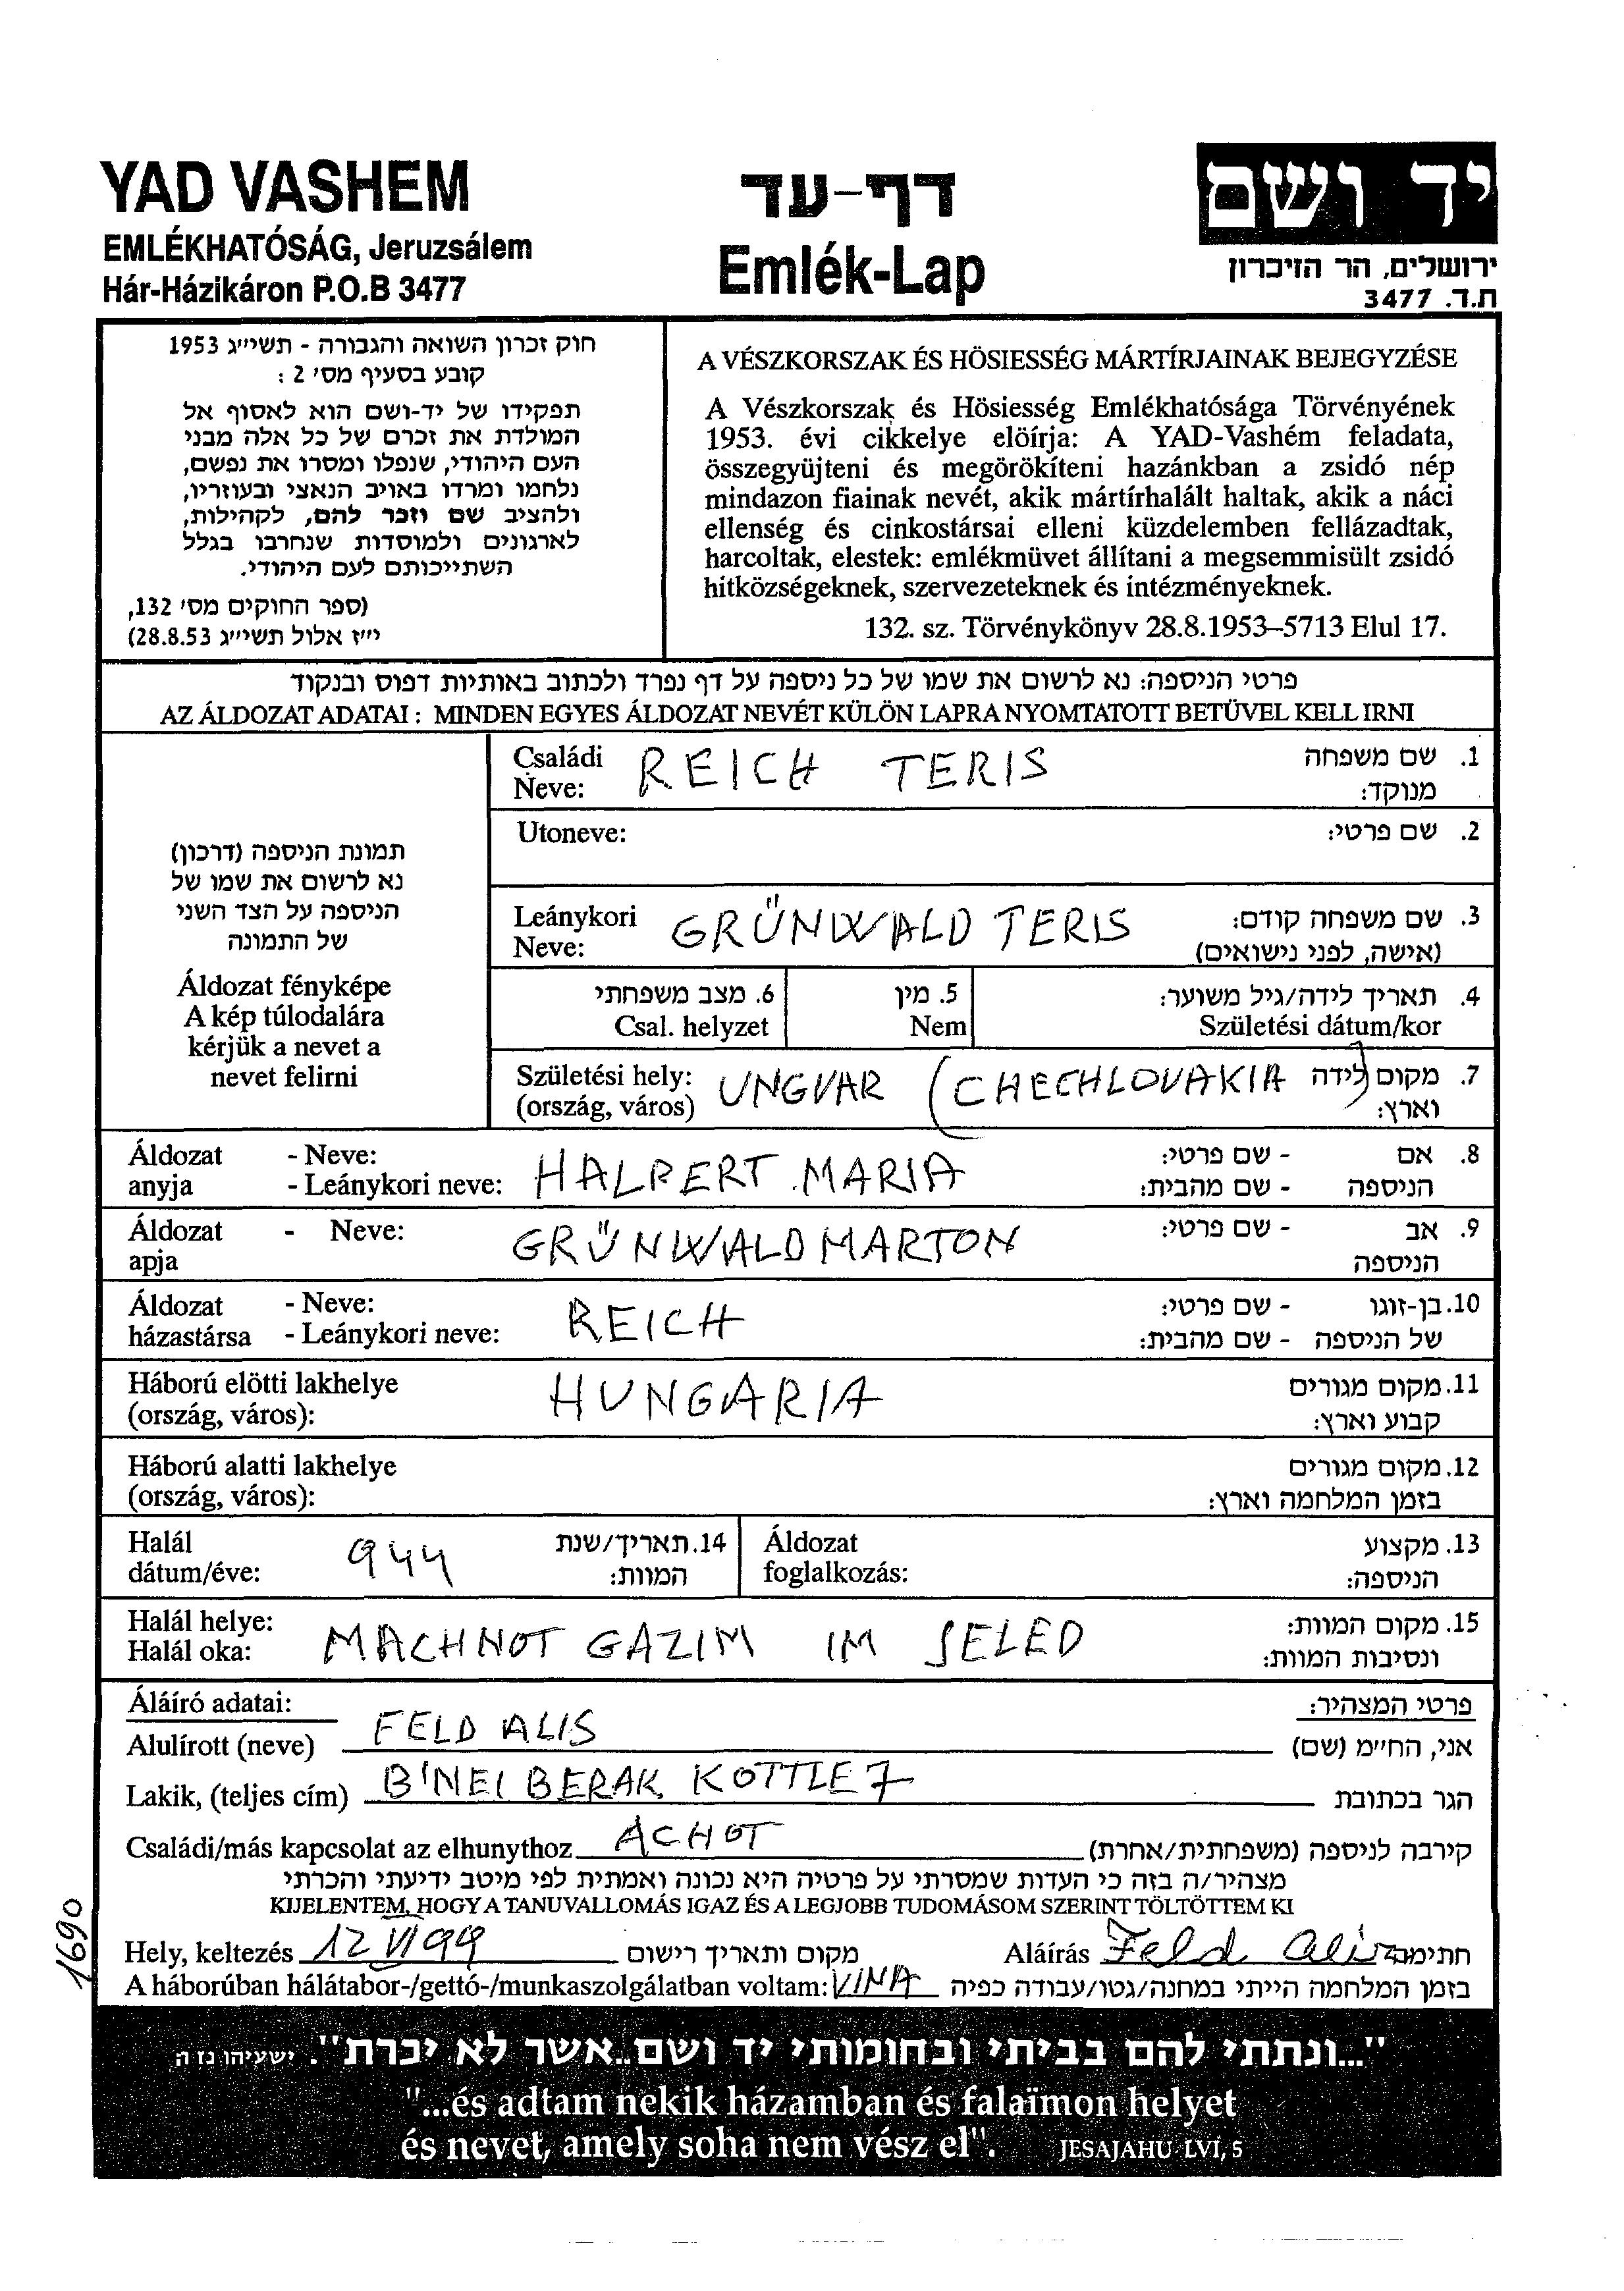 YAD VASHEM
EMLÉKHATÓSÁG, Jeruzsálem
Hár-Házikáron P.O.B 3477
דף-עד
Emlék-Lap
יד ושם
ירושלים, הר הזיכרון
ת.ד. 3477
חוק זכרון השואה והגבורה - תשי״ג 1953
קובע בסעיף מס׳ 2 :
תפקידו של יד-ושם הוא לאסוף אל
המולדת את זכרם של כל אלה מבני
העם היהודי, שנפלו ומסרו את נפשם,
נלחמו ומרדו באויב הנאצי ובעוזריו,
ולהציב שם וזכר להם, לקהילות,
לארגונים ולמוסדות שנחרבו בגלל
השתייכותם לעם היהודי.
(ספר החוקים מס׳ 132,
י״ז אלול תשי״ג 28.8.53)
A VÉSZKORSZAK ÉS HÖSIESSÉG MÁRTÍRJAINAK BEJEGYZÉSE
A Vészkorszak és Hösiesség Emlékhatósága Törvényének
1953. évi cikkelye elöírja: A YAD-Vashém feladata,
összegyüjteni és megörökíteni hazánkban a zsidó nép
mindazon fiainak nevét, akik mártírhalált haltak, akik a náci
ellenség és cinkostársai elleni küzdelemben fellázadtak,
harcoltak, elestek: emlékmüvet állítani a megsemmisült zsidó
hitközségeknek, szervezeteknek és intézményeknek.
132. sz. Törvénykönyv 28.8.1953–5713 Elul 17.
פרטי הניספה: נא לרשום את שמו של כל ניספה על דף נפרד ולכתוב באותיות דפוס ובנקוד
AZ ÁLDOZAT ADATAI : MINDEN EGYES ÁLDOZAT NEVÉT KÜLÖN LAPRA NYOMTATOTT BETÜVEL KELL IRNI
תמונת הניספה (דרכון)
נא לרשום את שמו של
הניספה על הצד השני
של התמונה
Áldozat fényképe
A kép túlodalára
kérjük a nevet a
nevet felirni
Családi REICH TERIS 1. שם משפחה
Neve: מנוקד:
Utoneve: 2. שם פרטי:
Leánykori GRÜNWALD TERIS 3. שם משפחה קודם:
Neve: (אישה, לפני נישואים)
6. מצב משפחתי 5. מין 4. תאריך לידה/גיל משוער:
Csal. helyzet Nem Születési dátum/kor
Születési hely: UNGVAR (CHECHLOVAKIA) 7. מקום לידה
(ország, város) וארץ:
Áldozat - Neve: HALPERT MARIA - שם פרטי: 8. אם
anyja - Leánykori neve: - שם מהבית: הניספה
Áldozat - Neve: GRÜNWALD MARTON - שם פרטי: 9. אב
apja הניספה
Áldozat - Neve: REICH - שם פרטי: 10. בן-זוגו
házastársa - Leánykori neve: - שם מהבית: של הניספה
Háború elötti lakhelye HUNGARIA 11. מקום מגורים
(ország, város): קבוע וארץ:
Háború alatti lakhelye 12. מקום מגורים
(ország, város): בזמן המלחמה וארץ:
Halál 944 14. תאריך/שנת Áldozat 13. מקצוע
dátum/éve: המוות: foglalkozás: הניספה:
Halál helye: MACHNOT GAZIM IM JELED 15. מקום המוות:
Halál oka: ונסיבות המוות:
Áláíró adatai: פרטי המצהיר:
Alulírott (neve) FELD ALIS אני, החי״מ (שם)
Lakik, (teljes cím) B'NEI BERAK KOTTLE 7 הגר בכתובת
Családi/más kapcsolat az elhunythoz ACHOT קירבה לניספה (משפחתית/אחרת)
מצהיר/ה בזה כי העדות שמסרתי על פרטיה היא נכונה ואמתית לפי מיטב ידיעתי והכרתי
KIJELENTEM, HOGY A TANUVALLOMÁS IGAZ ÉS A LEGJOBB TUDOMÁSOM SZERINT TÖLTÖTTEM KI
Hely, keltezés 12 VI 99 מקום ותאריך רישום Aláírás Feld Aliz חתימה
A háborúban hálátabor-/gettó-/munkaszolgálatban voltam: VINA בזמן המלחמה הייתי במחנה/גטו/עבודה כפיה
1690
"...ונתתי להם בביתי ובחומותי יד ושם...אשר לא יכרת". ישעיהו נו ה
"...és adtam nekik házamban és falaïmon helyet
és nevet, amely soha nem vész el". JESAJAHU LVI, 5